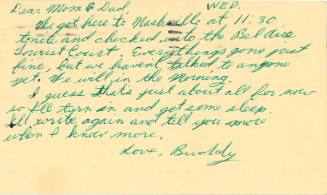 Dear Mom & Dad, WED.
We got here to Nashville at 11:30
tnite and checked into the Bel Aire
Tourist Court. Everythings gone just
fine, but we haven't talked to anyone
yet. We will in the Morning.
I guess that's just about all for now
so I'll turn in and get some sleep.
I'll write again and tell you more
when I know more.
Love, Buddy